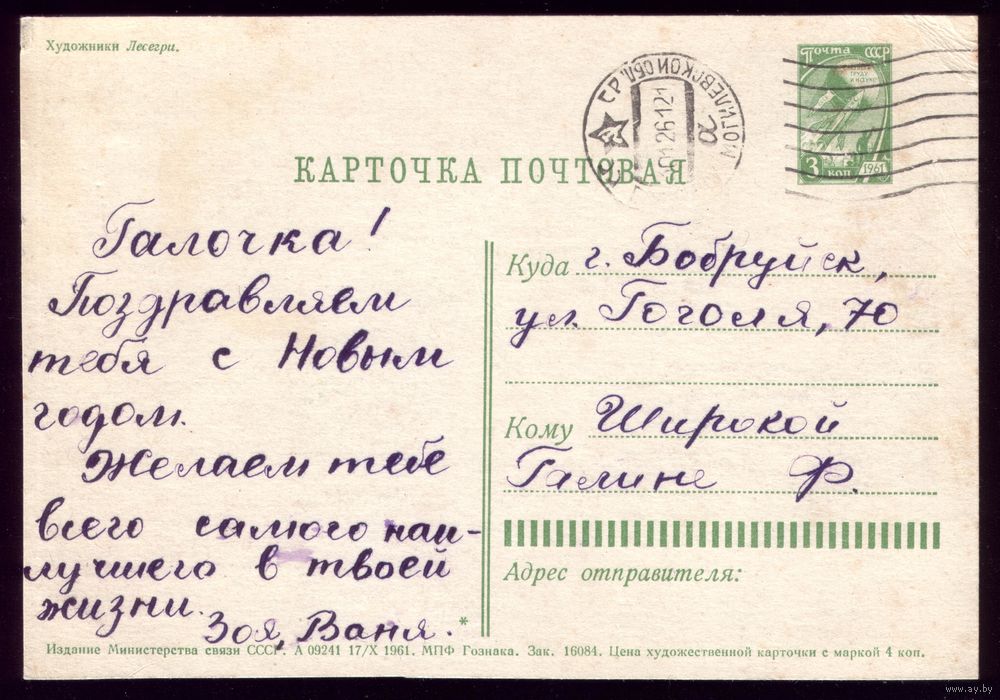 Художники Лесегри.
Почта СССР
3 коп 1961
МОГИЛЕВСКОЙ ОБЛ
КАРТОЧКА ПОЧТОВАЯ
Галочка!
Поздравляем
тебя с Новым
годом.
Желаем тебе
всего самого наи-
лучшего в твоей
жизни.
Зоя, Ваня.
*
Куда г. Бобруйск,
ул. Гоголя, 70
Кому Широкой
Галине Ф.
Адрес отправителя:
Издание Министерства связи СССР. А 09241 17/X 1961. МПФ Гознака. Зак. 16084. Цена художественной карточки с маркой 4 коп.
www.ay.by